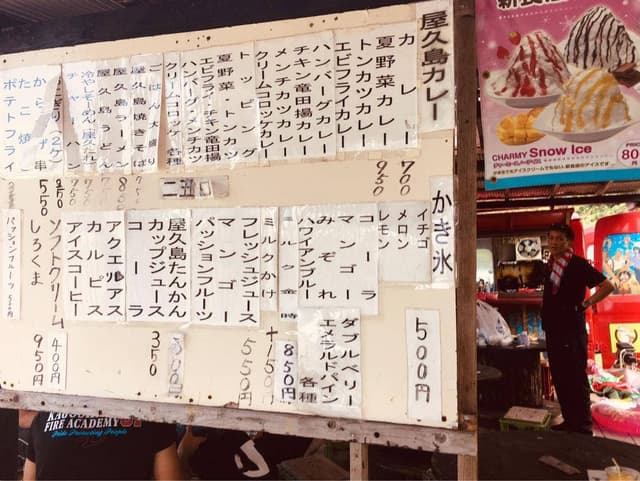 屋久島カレー
カレー 700
夏野菜カレー 950
トンカツカレー
エビフライカレー
ハンバーグカレー
チキン竜田揚カレー
メンチカツカレー
クリームコロッケカレー
トッピング
夏野菜・トンカツ
エビフライ・チキン竜田揚
ハンバーグ・メンチカツ
クリームコロッケ 各種
ごはん大盛り
屋久島焼きそば
屋久島ラーメン
屋久島うどん
チャーハン 950
おにぎり(2ケ) 350
からあげ串 550
たこ焼
ポテトフライ
かき氷
イチゴ
メロン
レモン
500円
コーラ
マンゴー
みぞれ
ハワイアンブルー
ダブルベリー
エメラルドパイン
各種
ミルク金時 850円
ミルクかけ +150
フレッシュジュース 550円
マンゴー
パッションフルーツ
屋久島たんかん
カップジュース 350
コーラ
アクエリアス
カルピス
アイスコーヒー
ソフトクリーム 400円
しろくま 950円
パッションフルーツ
CHARMY Snow Ice
80
FIRE ACADEMY